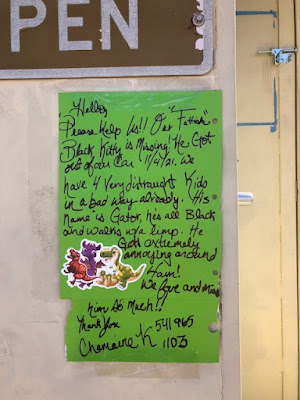 PEN
"Hello,
Please Help Us!! Our
Black Kitty is Missing! He Got
out of our Car 11/4/21. We
have 4 Very distraught Kids
in a bad way already. His
name is Gator, hes all Black
and walks w/a limp. He
Gets extremely
annoying around
4am!
We love and miss
him so Much!!
Thank you 541 965
K 1103